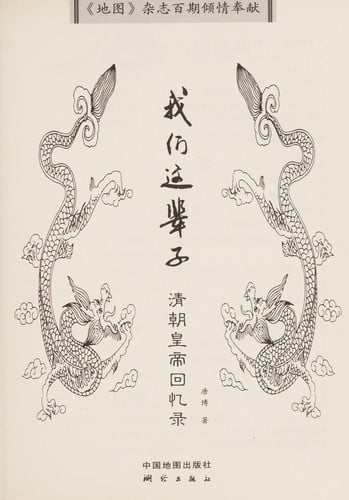 《地图》杂志百期倾情奉献
我们这辈子
清朝皇帝回忆录
唐博 著
中国地图出版社
测绘出版社